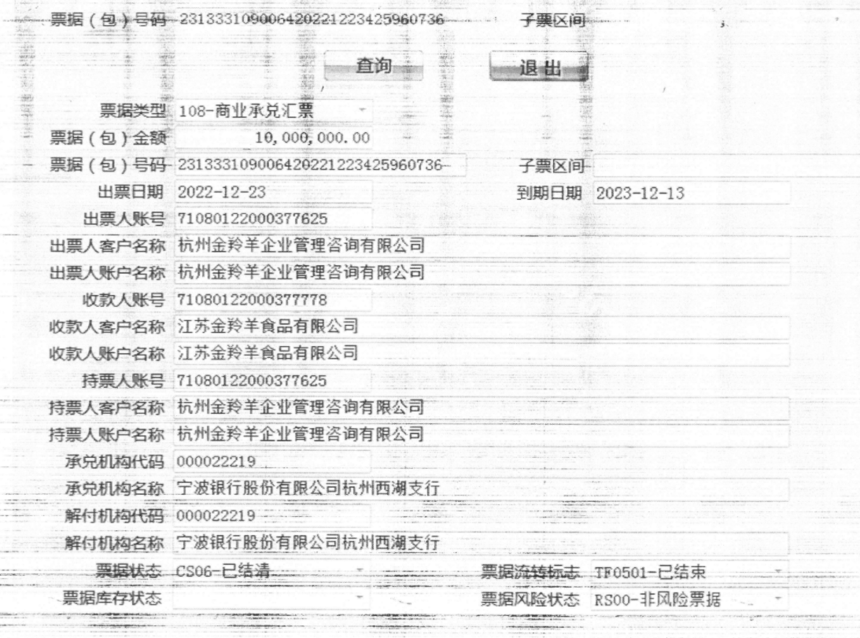 票据（包）号码 231333109006420221223425960736 子票区间
查询 退出
票据类型 108-商业承兑汇票
票据（包）金额 10,000,000.00
票据（包）号码 231333109006420221223425960736 子票区间
出票日期 2022-12-23 到期日期 2023-12-13
出票人账号 71080122000377625
出票人客户名称 杭州金羚羊企业管理咨询有限公司
出票人账户名称 杭州金羚羊企业管理咨询有限公司
收款人账号 71080122000377778
收款人客户名称 江苏金羚羊食品有限公司
收款人账户名称 江苏金羚羊食品有限公司
持票人账号 71080122000377625
持票人客户名称 杭州金羚羊企业管理咨询有限公司
持票人账户名称 杭州金羚羊企业管理咨询有限公司
承兑机构代码 000022219
承兑机构名称 宁波银行股份有限公司杭州西湖支行
解付机构代码 000022219
解付机构名称 宁波银行股份有限公司杭州西湖支行
票据状态 CS06-已结清 票据流转标志 TF0501-已结束
票据库存状态 票据风险状态 RS00-非风险票据